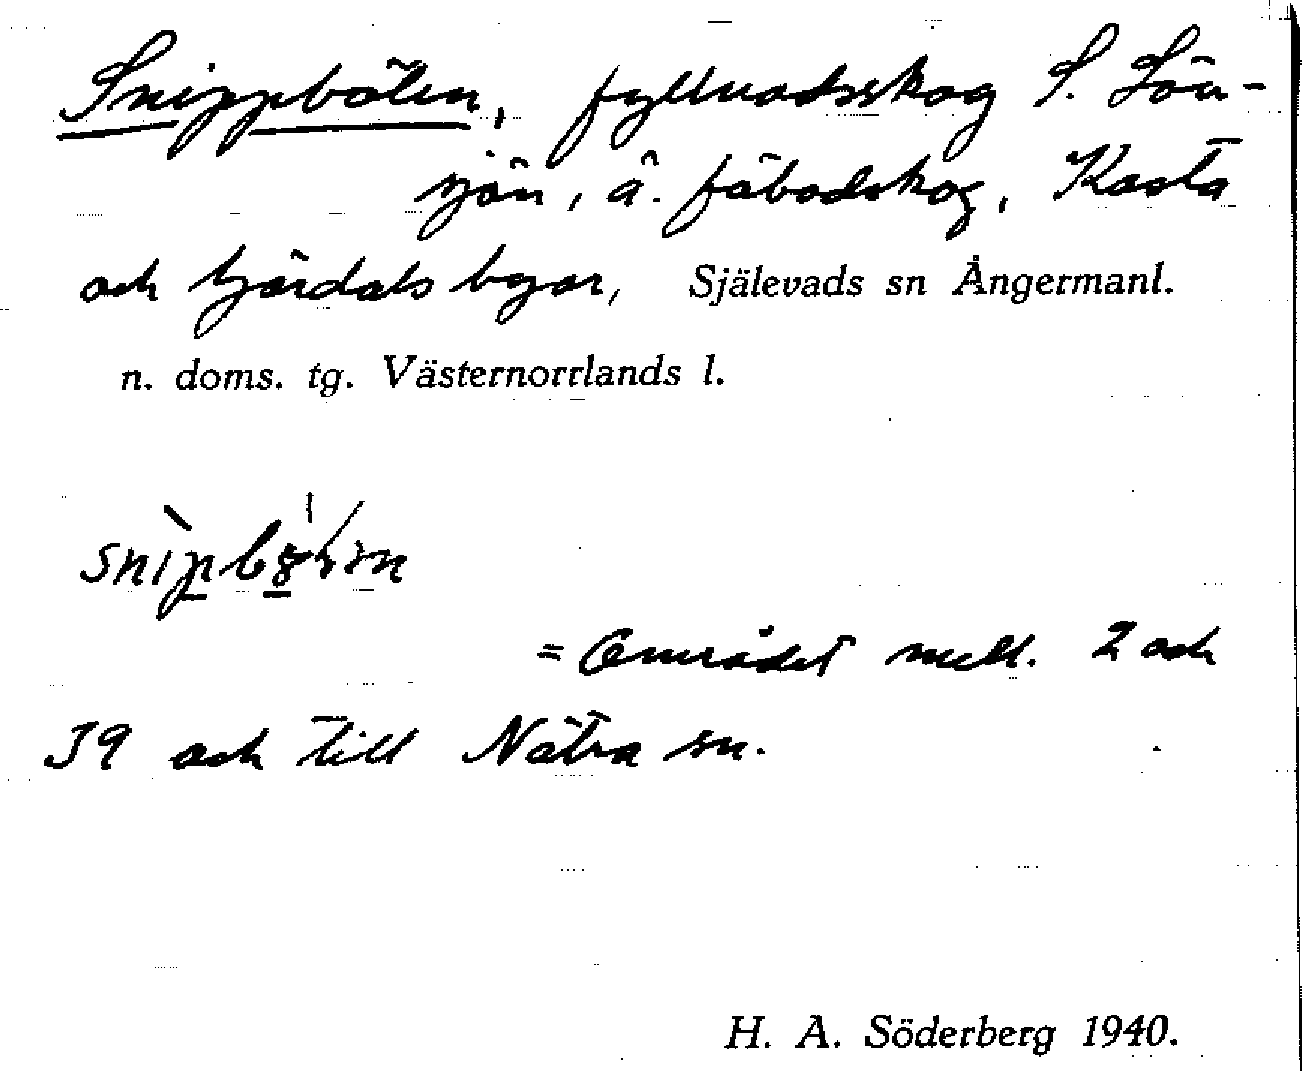 Snippbölen, fyllnadsskog S. Lön-
sjön, ä. fäbodskog, Kasta
och hjärdals byar, Själevads sn Ångermanl.
n. doms. tg. Västernorrlands l.
= Området mell. 2 och
39 och till Nätra sn.
H. A. Söderberg 1940.